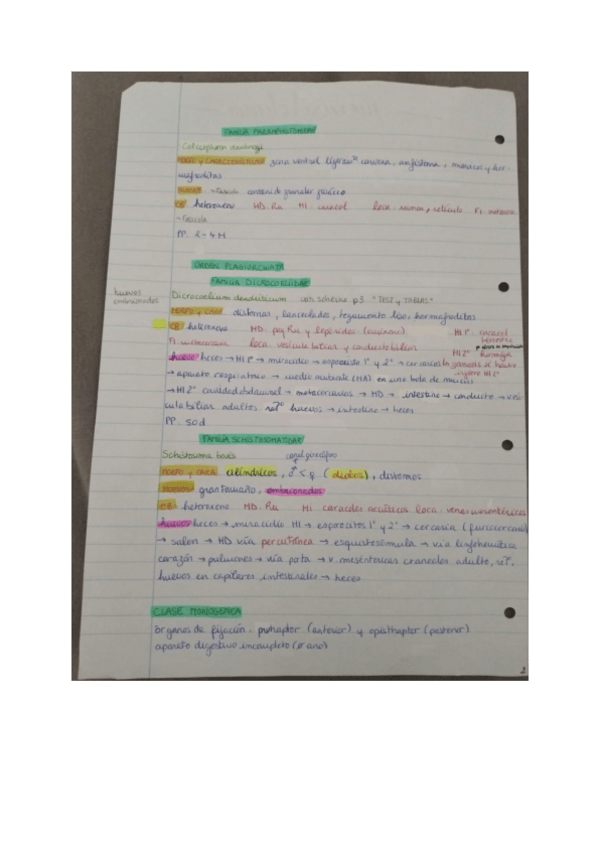 FAMILIA PARAMPHISTOMIDAE
Calicophoron daubneyi
MORFO y CARACTERÍSTICAS zona ventral ligeram convexa, anfistoma, musculos y her-
mafroditas
HUEVOS ~Fasciola contenido granular grisáceo
CB heteroxeno HD. Ru HI. caracol loca. rumen, retículo FI. metacer.
~Fasciola
PP. 2-4 M
ORDEN PLAGIORCHIATA
FAMILIA DICROCOELIIDAE
huevos embrionados
Dicrocoelium dendriticum ver schema p3 "TEST y TABLAS"
MORFO y CARA distomas, lanceolados, tegumento liso, hermafroditas
CB heteroxeno HD. peq Ru y lepóridos (HI 1º caracol terrestre
FI. metacercaria loca. vesícula biliar y conductos biliar HI 2º hormiga
huevo heces → HI 1º → miracidio → esporocisto 1º y 2º → cercarias
→ aparato respiratorio → medio ambiente (MA) en una bola de mucus
→ HI 2º cavidad abdominal → metacercarias → HD → intestino → conducto → vesí-
cula biliar adultos rep huevos → intestino → heces
PP. 50d
FAMILIA SCHISTOSOMATIDAE
Schistosoma bovis canal ginecóforo
MORFO y CARA cilíndricos, ♂ < ♀ (dioicos), distomos
HUEVOS gran tamaño, embrionados
CB heteroxeno HD. Ru HI caracoles acuáticos loca. venas mesentéricas
huevos heces → miracidio HI → esporocitos 1º y 2º → cercaria (furcocercaria)
→ salen → HD vía percutánea → esquistosómula → vía linfohemática
corazón → pulmones → vía porta → v mesentéricas craneales adulto, rep.
huevos en capilares intestinales → heces
CLASE MONOGENEA
órganos de fijación. prohaptor (anterior) y opisthaptor (posterior)
aparato digestivo incompleto (ø ano)
2